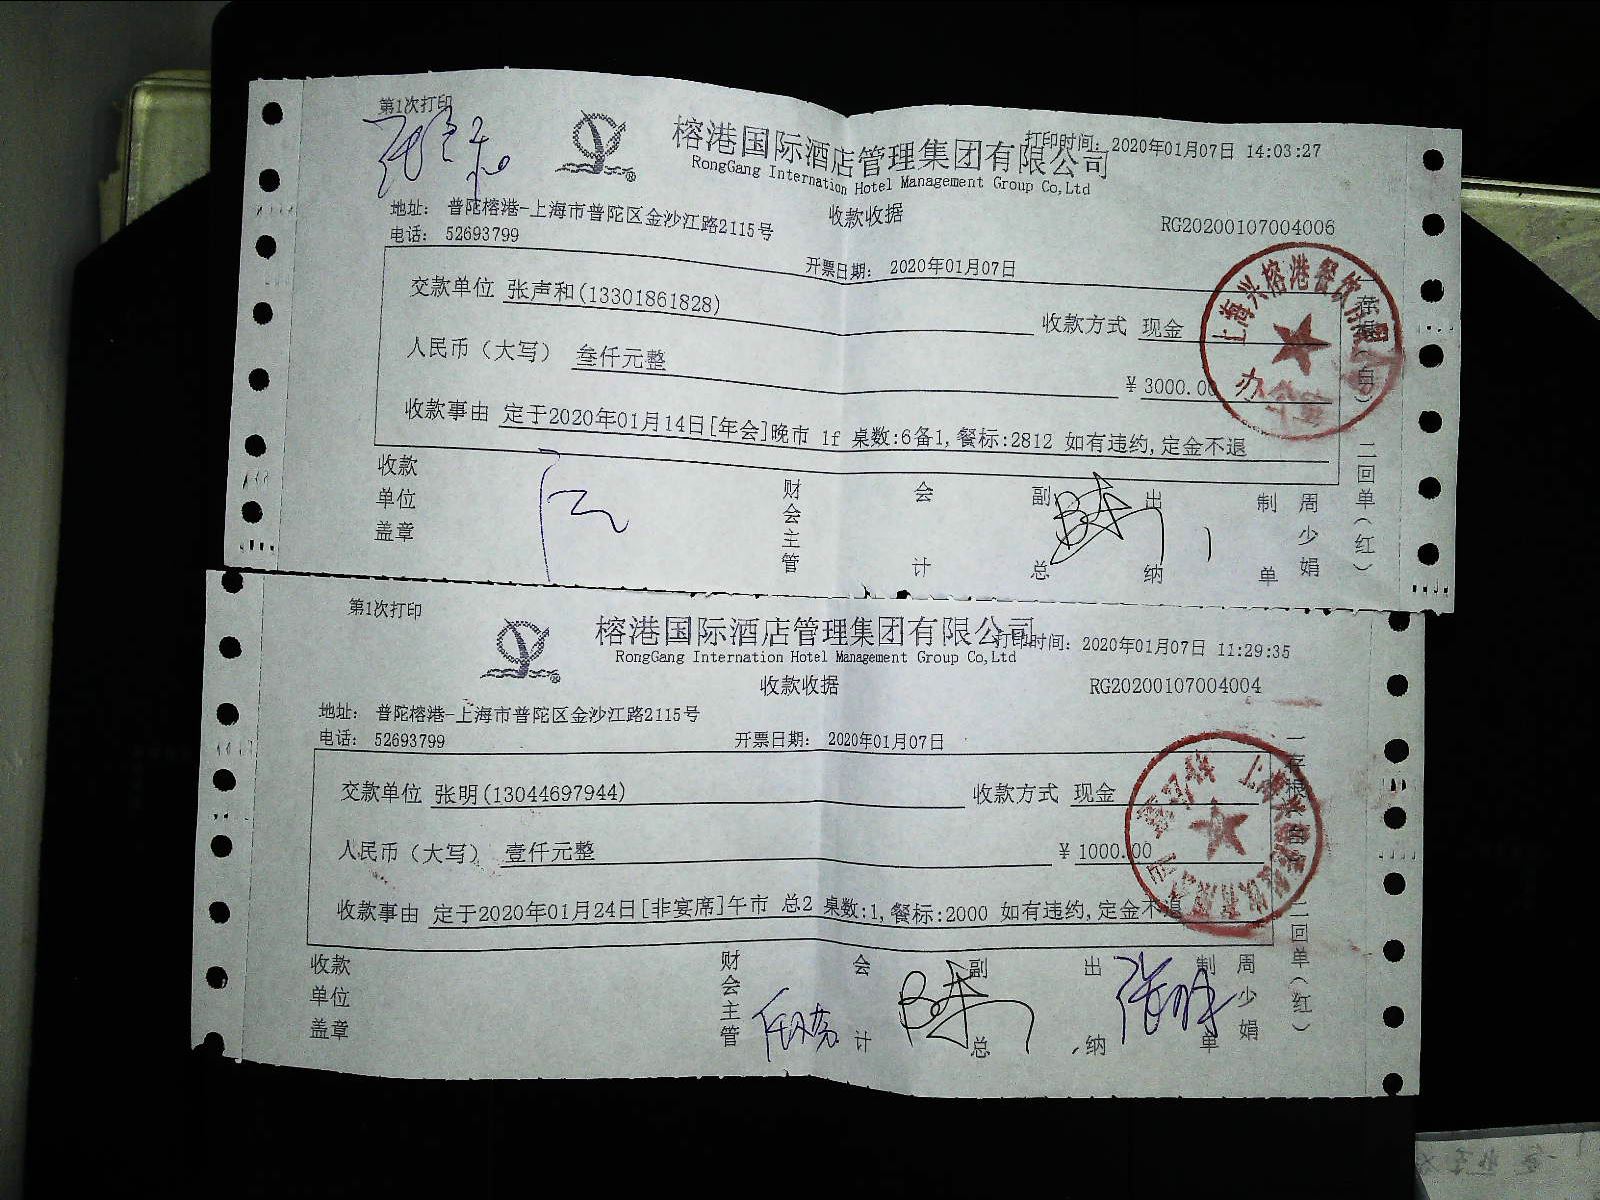 第1次打印
榕港国际酒店管理集团有限公司
打印时间: 2020年01月07日 14:03:27
RongGang Internation Hotel Management Group Co,Ltd
收款收据
RG20200107004006
地址: 普陀榕港-上海市普陀区金沙江路2115号
电话: 52693799
开票日期: 2020年01月07日
交款单位 张声和(13301861828)
收款方式 现金
人民币(大写) 叁仟元整
¥ 3000.00
收款事由 定于2020年01月14日[年会]晚市 1f 桌数:6备1,餐标:2812 如有违约,定金不退
收款单位盖章
财会主管
会计
副总
出纳
制单
周少娟
存根(白) 二回单(红)
上海兴榕港餐饮
办
第1次打印
榕港国际酒店管理集团有限公司
打印时间: 2020年01月07日 11:29:35
RongGang Internation Hotel Management Group Co,Ltd
收款收据
RG20200107004004
地址: 普陀榕港-上海市普陀区金沙江路2115号
电话: 52693799
开票日期: 2020年01月07日
交款单位 张明(13044697944)
收款方式 现金
人民币(大写) 壹仟元整
¥ 1000.00
收款事由 定于2020年01月24日[非宴席]午市 总2 桌数:1,餐标:2000 如有违约,定金不退
收款单位盖章
财会主管
会计
副总
出纳
制单
周少娟
一存根(白) 二回单(红)